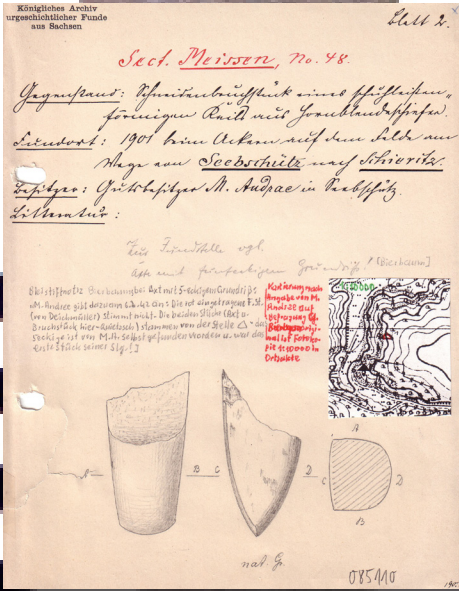 Königliches Archiv
urgeschichtlicher Funde
aus Sachsen
Blatt 2.
Sect. Meissen, No. 48.
Gegenstand: Schneidenbruchstück eines schuhleisten-
förmigen Keils aus Hornblendeschiefer.
Fundort: 1901 beim Ackern auf dem Felde am
Wege von Seebschütz nach Schieritz.
Besitzer: Gutsbesitzer M. Andrae in Seebschütz.
Litteratur:
Zur Fundstelle vgl.
Axt mit fünfeckigem Grundriß! [Bierbaum]
Bleistiftnotiz Bierbaum bei Axt mit 5-eckigem Grundriß
M. Andrae gibt dazu an: Die ist eingetragene F.St.
(von Deichmüller) stimmt nicht. Die beiden Stücke (Axt u.
Bruchstück hier) stammen von der Stelle Δ - das
5eckige ist von M. A. selbst gefunden worden u. war das
erste Stück seiner Slg.!]
Kartierung nach
Angabe von M.
Andrae auf
Befragung
Bierbaum
auf Fotoko-
pie 1:10000 in
Ortsakte
1:10000
A
B
C
D
A
C
D
B
nat. Gr.
085110